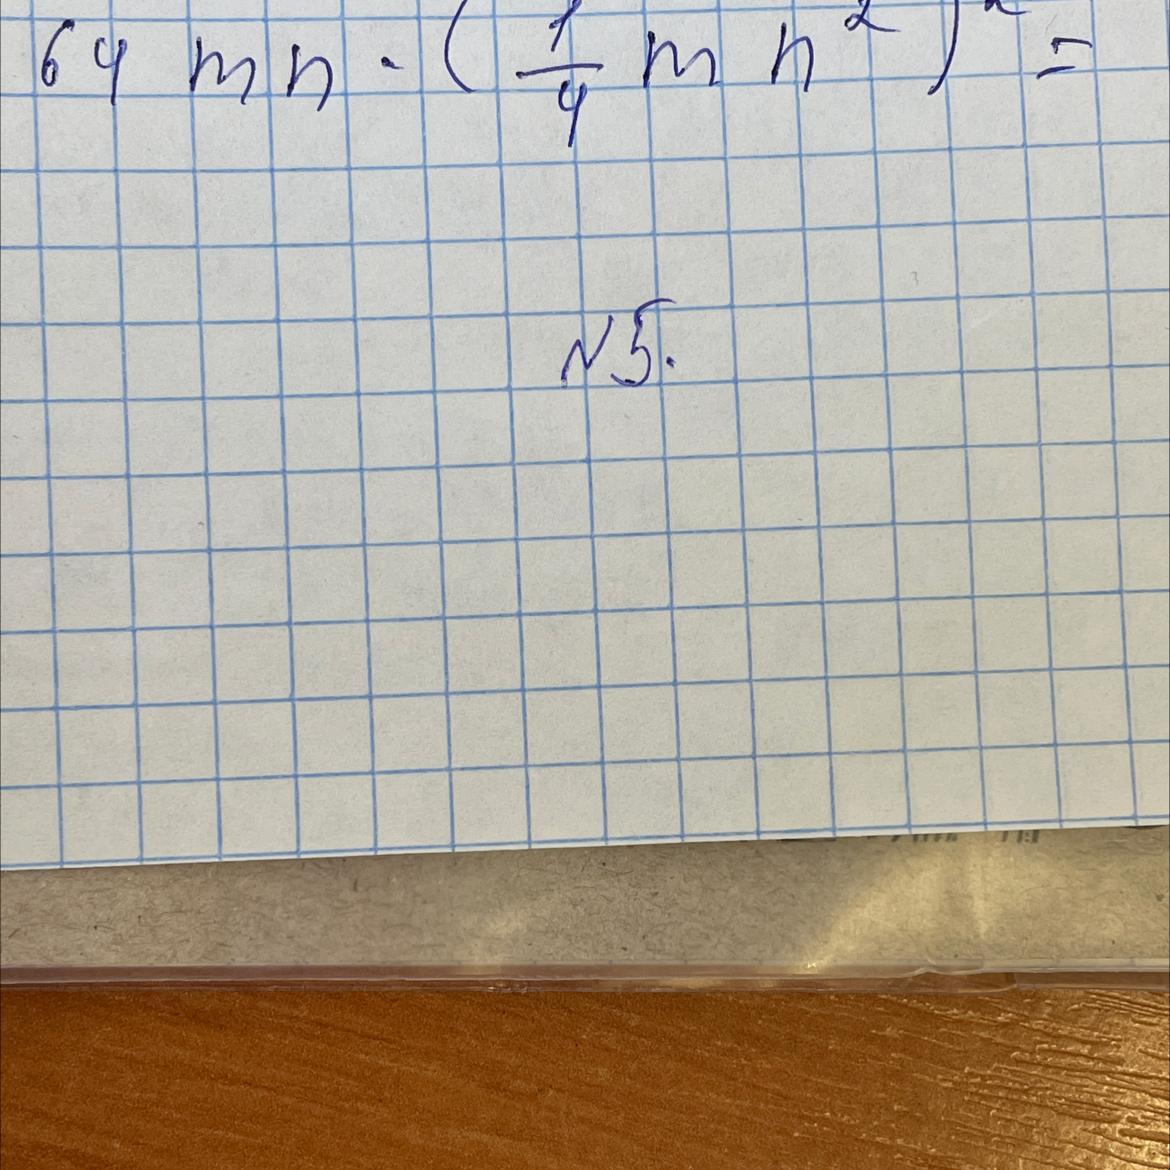 64 mn · (1/4 m n²)² =
N5.